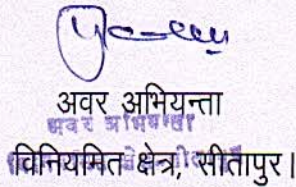 अवर अभियन्ता
अवर अभियन्ता
विनियमित क्षेत्र, सीतापुर।